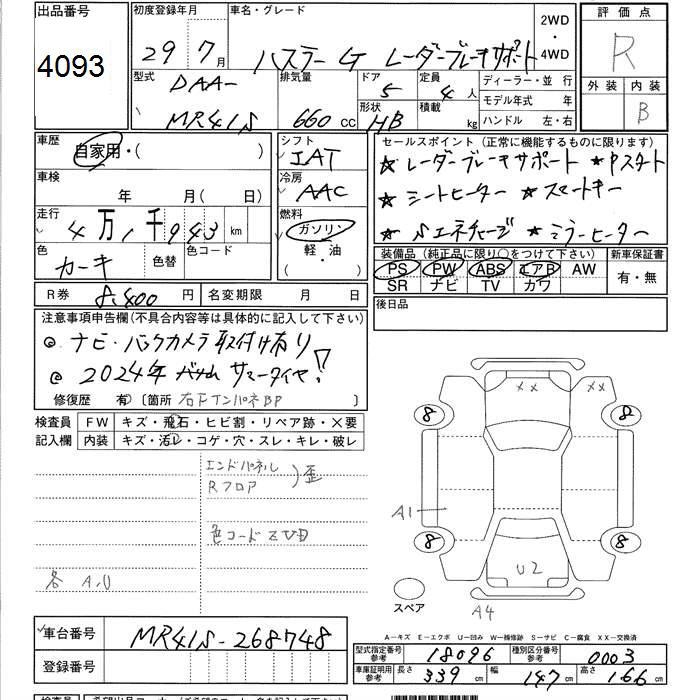 出品番号
4093
初度登録年月
29年7月
車名・グレード
ハスラー G レーダーブレーキサポート
2WD
・
4WD
評価点
R
外装 内装
B
型式
DAA-
MR41S
排気量
660 CC
ドア
5
形状
HB
定員
4 人
積載
kg
ディーラー・並 行
モデル年式 年
ハンドル 左・右
車歴
自家用・( )
車検
年 月( 日)
走行
4万1千943 km
色
カーキ
色替
色コード
R券 8,400 円
名変期限 月 日
シフト
IAT
冷房
AAC
燃料
ガソリン
軽・油
( )
セールスポイント (正常に機能するものに限ります)
★レーダーブレーキサポート ★Pスタート
★シートヒーター ★スマートキー
★Sエネチャージ ★ミラーヒーター
装備品 (純正品に限り○をつけて下さい)
PS PW ABS エアB AW
SR ナビ TV カワ
新車保証書
有・無
後日品
注意事項申告欄(不具合内容等は具体的に記入して下さい)
◎ ナビ・バックカメラ取付け有り
◎ 2024年 サマータイヤ!
修復歴 有 〔箇所 右Fインパネ BP
検査員
記入欄
FW キズ・飛石・ヒビ割・リペア跡・X要
内装 キズ・汚れ・コゲ・穴・スレ・キレ・破レ
エンドパネル
Rフロア
)歪
色コード ZVD
各 A.U
XX XX
8 8
A1
8 8
U2
A4
スペア
A-キズ E-エクボ U-凹み W-補修跡 S-サビ C-腐食 XX-交換済
車台番号 MR41S-268748
登録番号
型式指定番号
参考
18096
種別区分番号
参考
0003
車庫証明用
参考
長さ 339 cm
幅 147 cm
高さ 166 cm